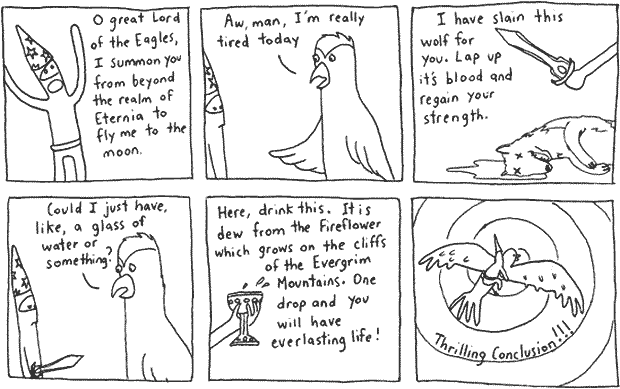 O great Lord
of the Eagles,
I summon you
from beyond
the realm of
Eternia to
fly me to the
moon.
Aw, man, I'm really
tired today
I have slain this
wolf for
you. Lap up
it's blood and
regain your
strength.
Could I just have,
like, a glass of
water or
something?
Here, drink this. It is
dew from the Fireflower
which grows on the cliffs
of the Evergrim
Mountains. One
drop and you
will have
everlasting life!
Thrilling Conclusion!!!